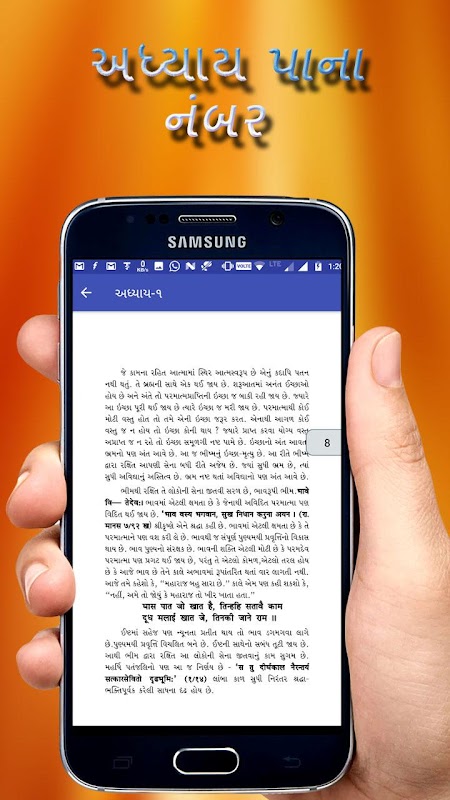 અધ્યાય પાના
નંબર
SAMSUNG
0
KB/s
VOLTE
LTE
1:20
અધ્યાય-૧
જે કામના રહિત આત્મામાં સ્થિર આત્મસ્વરૂપ છે એનું કદાપિ પતન
નથી થતું. તે બ્રહ્મની સાથે એક થઈ જાય છે. શરૂઆતમાં અનંત ઈચ્છાઓ
હોય છે અને અંતે તો પરમાત્મપ્રાપ્તિની ઈચ્છા જ બાકી રહી જાય છે. જ્યારે
આ ઇચ્છા પૂરી થઈ જાય છે ત્યારે ઇચ્છા જ મરી જાય છે. પરમાત્માથી કોઈ
મોટી વસ્તુ હોત તો તમે એની ઇચ્છા જરૂર કરત. એનાથી આગળ કોઈ
વસ્તુ જ ન હોય તો ઇચ્છા કોની થાય ? જ્યારે પ્રાપ્ત કરવા યોગ્ય વસ્તુ
અપ્રાપ્ત જ ન રહે તો ઇચ્છા સમૂળગી નષ્ટ પામે છે. ઇચ્છાનો અંત આવતાં
ભ્રમનો પણ અંત આવે છે. આ જ ભીષ્મનું ઇચ્છા-મૃત્યુ છે. આ રીતે ભીષ્મ
દ્વારા રક્ષિત આપણી સેના બધી રીતે અજેય છે. જ્યાં સુધી ભ્રમ છે, ત્યાં
સુધી અવિદ્યાનું અસ્તિત્વ છે. ભ્રમ નષ્ટ થતાં અવિદ્યાનો પણ અંત આવે છે.
8
ભીમથી રક્ષિત તે લોકોની સેના જીતવી સરળ છે, ભાવરૂપી ભીમ.भावे
वि— तेदेवः। ભાવમાં એટલી ક્ષમતા છે કે જેનાથી અવિદિત પરમાત્મા પણ
વિદિત થઈ જાય છે. 'भाव वस्य भगवान, सुख निधान करुना अयन। (रा.
मानस ७/९२ ख) શ્રીકૃષ્ણે એને શ્રદ્ધા કહી છે. ભાવમાં એટલી ક્ષમતા છે કે તે
પરમાત્માને પણ વશ કરી લે છે. ભાવથી જ સંપૂર્ણ પુણ્યમયી પ્રવૃત્તિનો વિકાસ
થાય છે. ભાવ પુણ્યનો સંરક્ષક છે. ભાવની શક્તિ એટલી મોટી છે કે પરમદેવ
પરમાત્મા પણ પ્રગટ થઈ જાય છે, પરંતુ તે એટલો કોમળ,એટલો તરલ હોય
છે કે આજે ભાવ છે તેને કાલે અભાવમાં રૂપાંતરિત થતાં વાર લાગતી નથી.
આજે તમે કહેશો કે, "મહારાજ બહુ સારા છે." કાલે એમ પણ કહી શકશો કે,
"નહીં, અમે તો જોયું કે મહારાજ તો ખીર ખાતા હતા."
घास पात जो खात है, तिन्हहि सतावै काम
दूध मलाई खात जे, तिनकी जाने राम ॥
ઈષ્ટમાં સહેજ પણ ન્યૂનતા પ્રતીત થાય તો ભાવ ડગમગવા લાગે
છે.પુણ્યમયી પ્રવૃત્તિ વિચલિત બને છે. ઈષ્ટની સાથેનો સબંધ તૂટી જાય છે.
આથી ભીમ દ્વારા રક્ષિત આ લોકોની સેના જીતવાનું કામ સુગમ છે.
મહર્ષિ પતંજલિનો પણ આ જ નિર્ણય છે - 'स तु दीर्घकाल नैरन्तर्य
सत्कारसेवितो दृढभूमिः' (१/१४) લાંબા કાળ સુધી નિરંતર શ્રદ્ધા-
ભક્તિપૂર્વક કરેલી સાધના દૃઢ હોય છે.